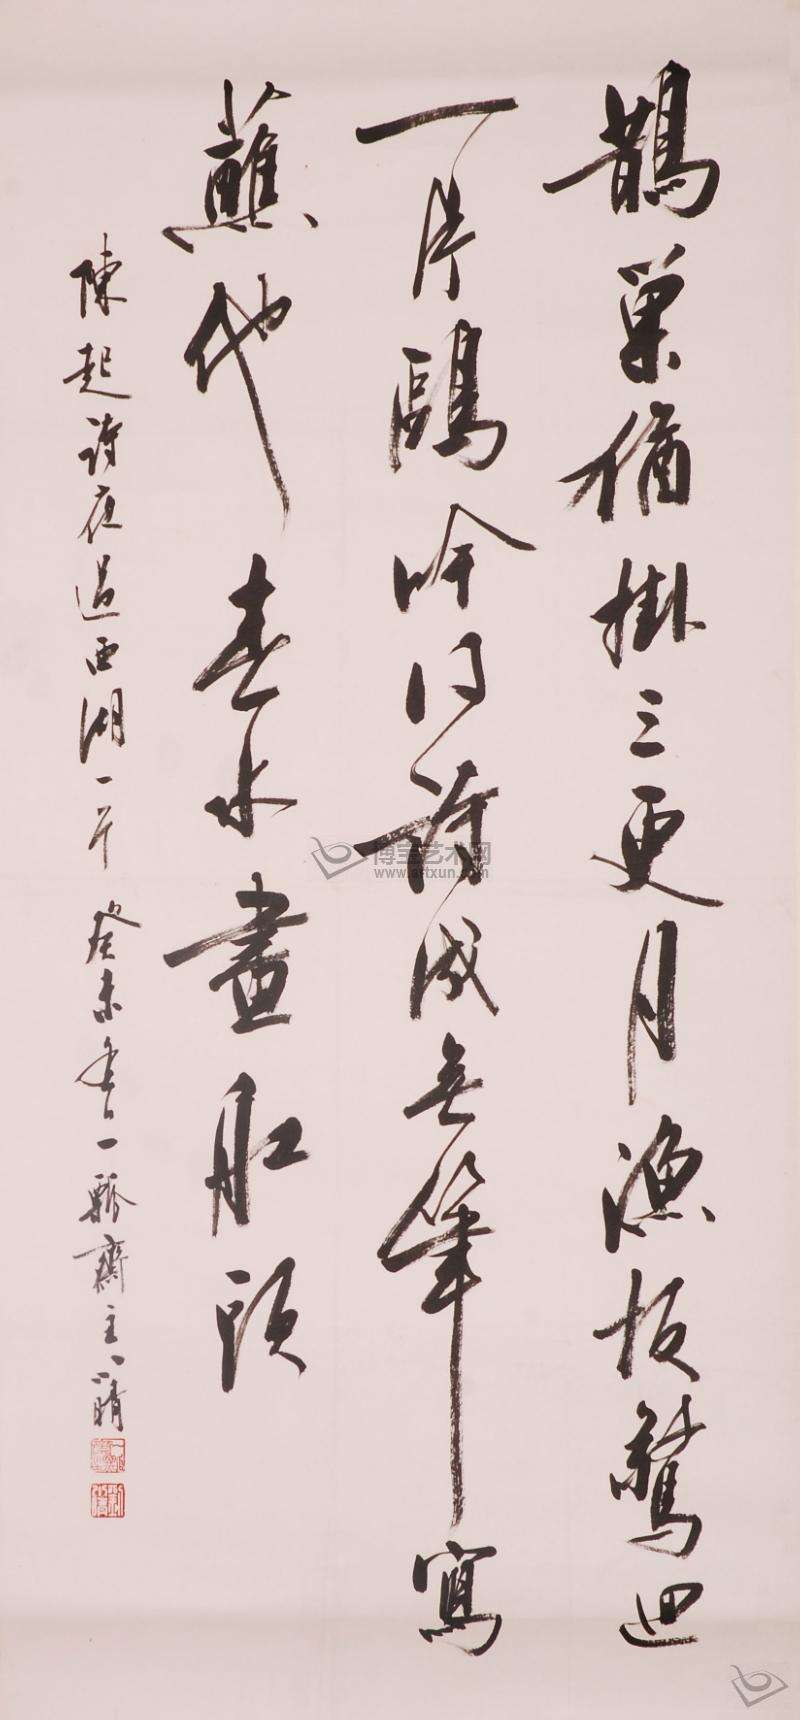 鵲巢猶掛三更月漁板驚迴
一片鷗吟得詩成無筆寫
蘸他春水畫舡頭
陳起詩夜過西湖一 癸未 一 齋主
博宝艺术网
www.artxun.com